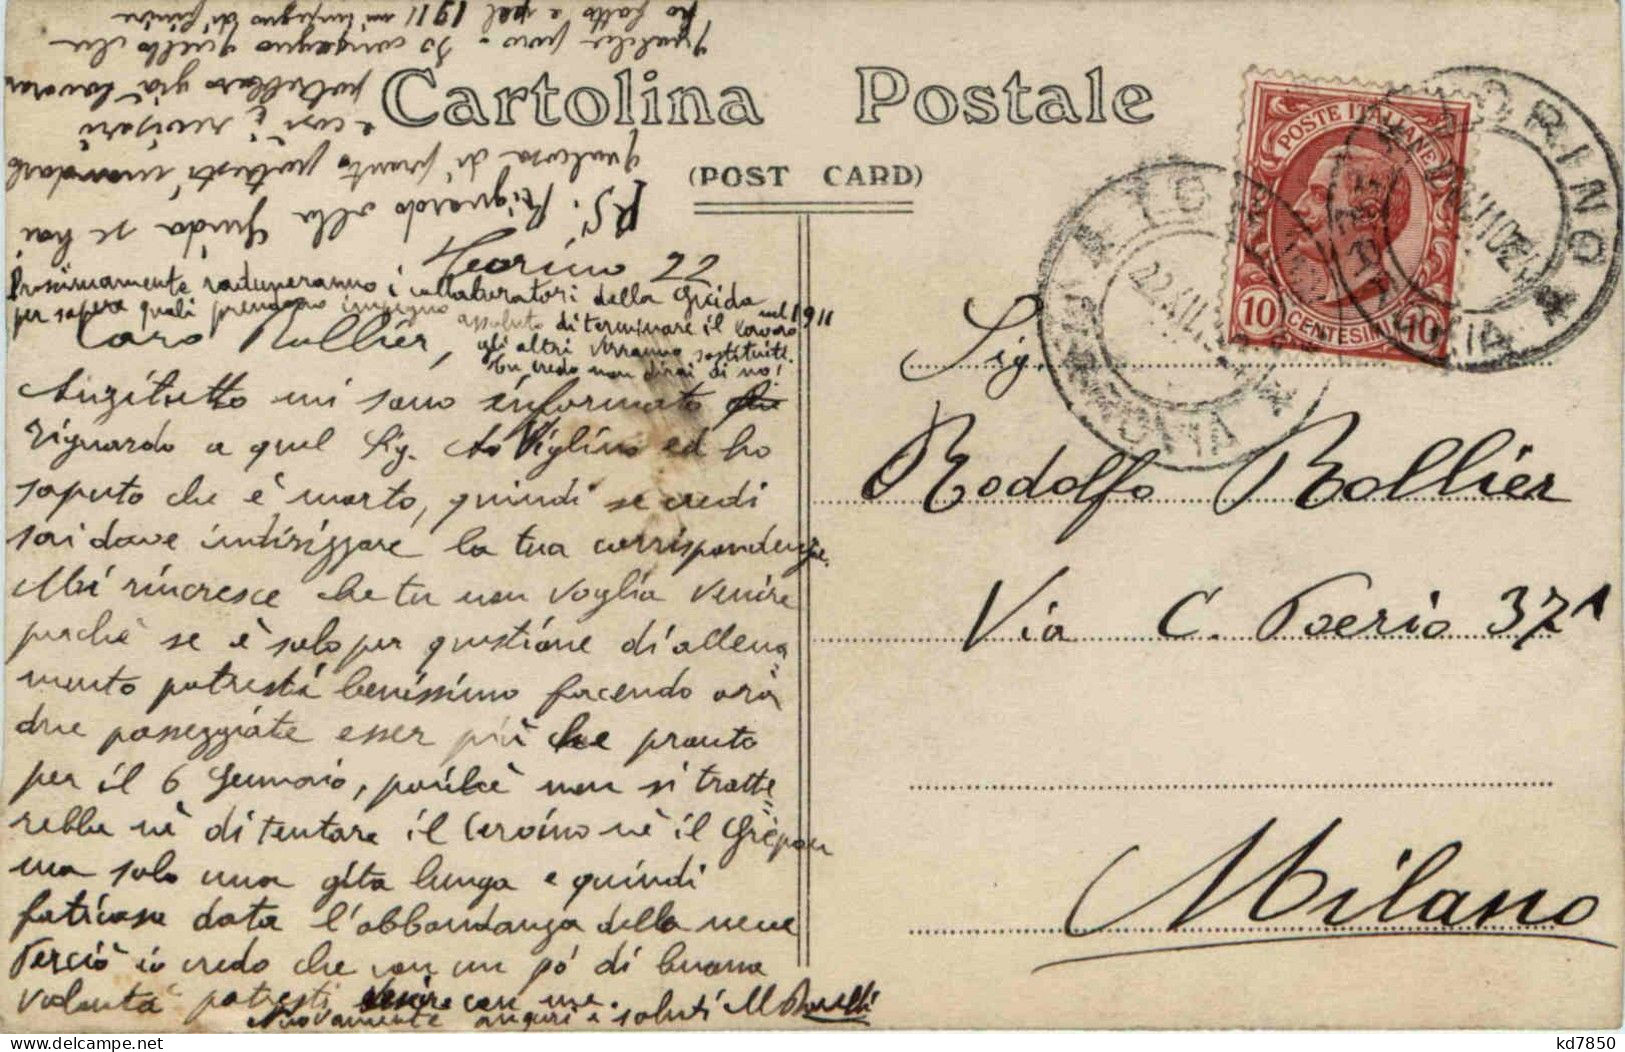 Cartolina Postale
(POST CARD)
POSTE ITALIANE
10 CENTESIMI 10
TORINO
FERROVIA
TORINO
FERROVIA
22.XII.10
Torino 22
Caro Rollier,
Anzitutto mi sono informato
riguardo a quel Sig. Viglino ed ho
saputo che è morto, quindi se credi
sai dove indirizzare la tua corrispondenza.
Mi rincresce che tu non voglia venire
perchè se è solo per questione di allena
mento potresti benissimo facendo ora
due passeggiate esser più che pronto
per il 6 Gennaio, poichè non si tratte
rebbe nè di tentare il Cervino nè il Grépon
ma solo una gita lunga e quindi
faticosa data l'abbondanza della neve
Perciò io credo che con un pò di buona
volontà potresti venire con me.
Nuovamente auguri e saluti M Borelli
Prossimamente raduneranno i collaboratori della Guida
per sapere quali prendono impegno assoluto di terminare il lavoro nel 1911
gli altri verranno sostituiti.
tu credo non dirai di no!
P.S. Riguardo alla Guida se hai
qualcosa di pronto potresti mandarlo
e così i revisori
potrebbero già lavorare
Qualche poco - Io consegno quello che
ho fatto e pel 1911 mi impegno di finire
Sig.
Rodolfo Rollier
Via C. Poerio 37A
Milano
kd7850